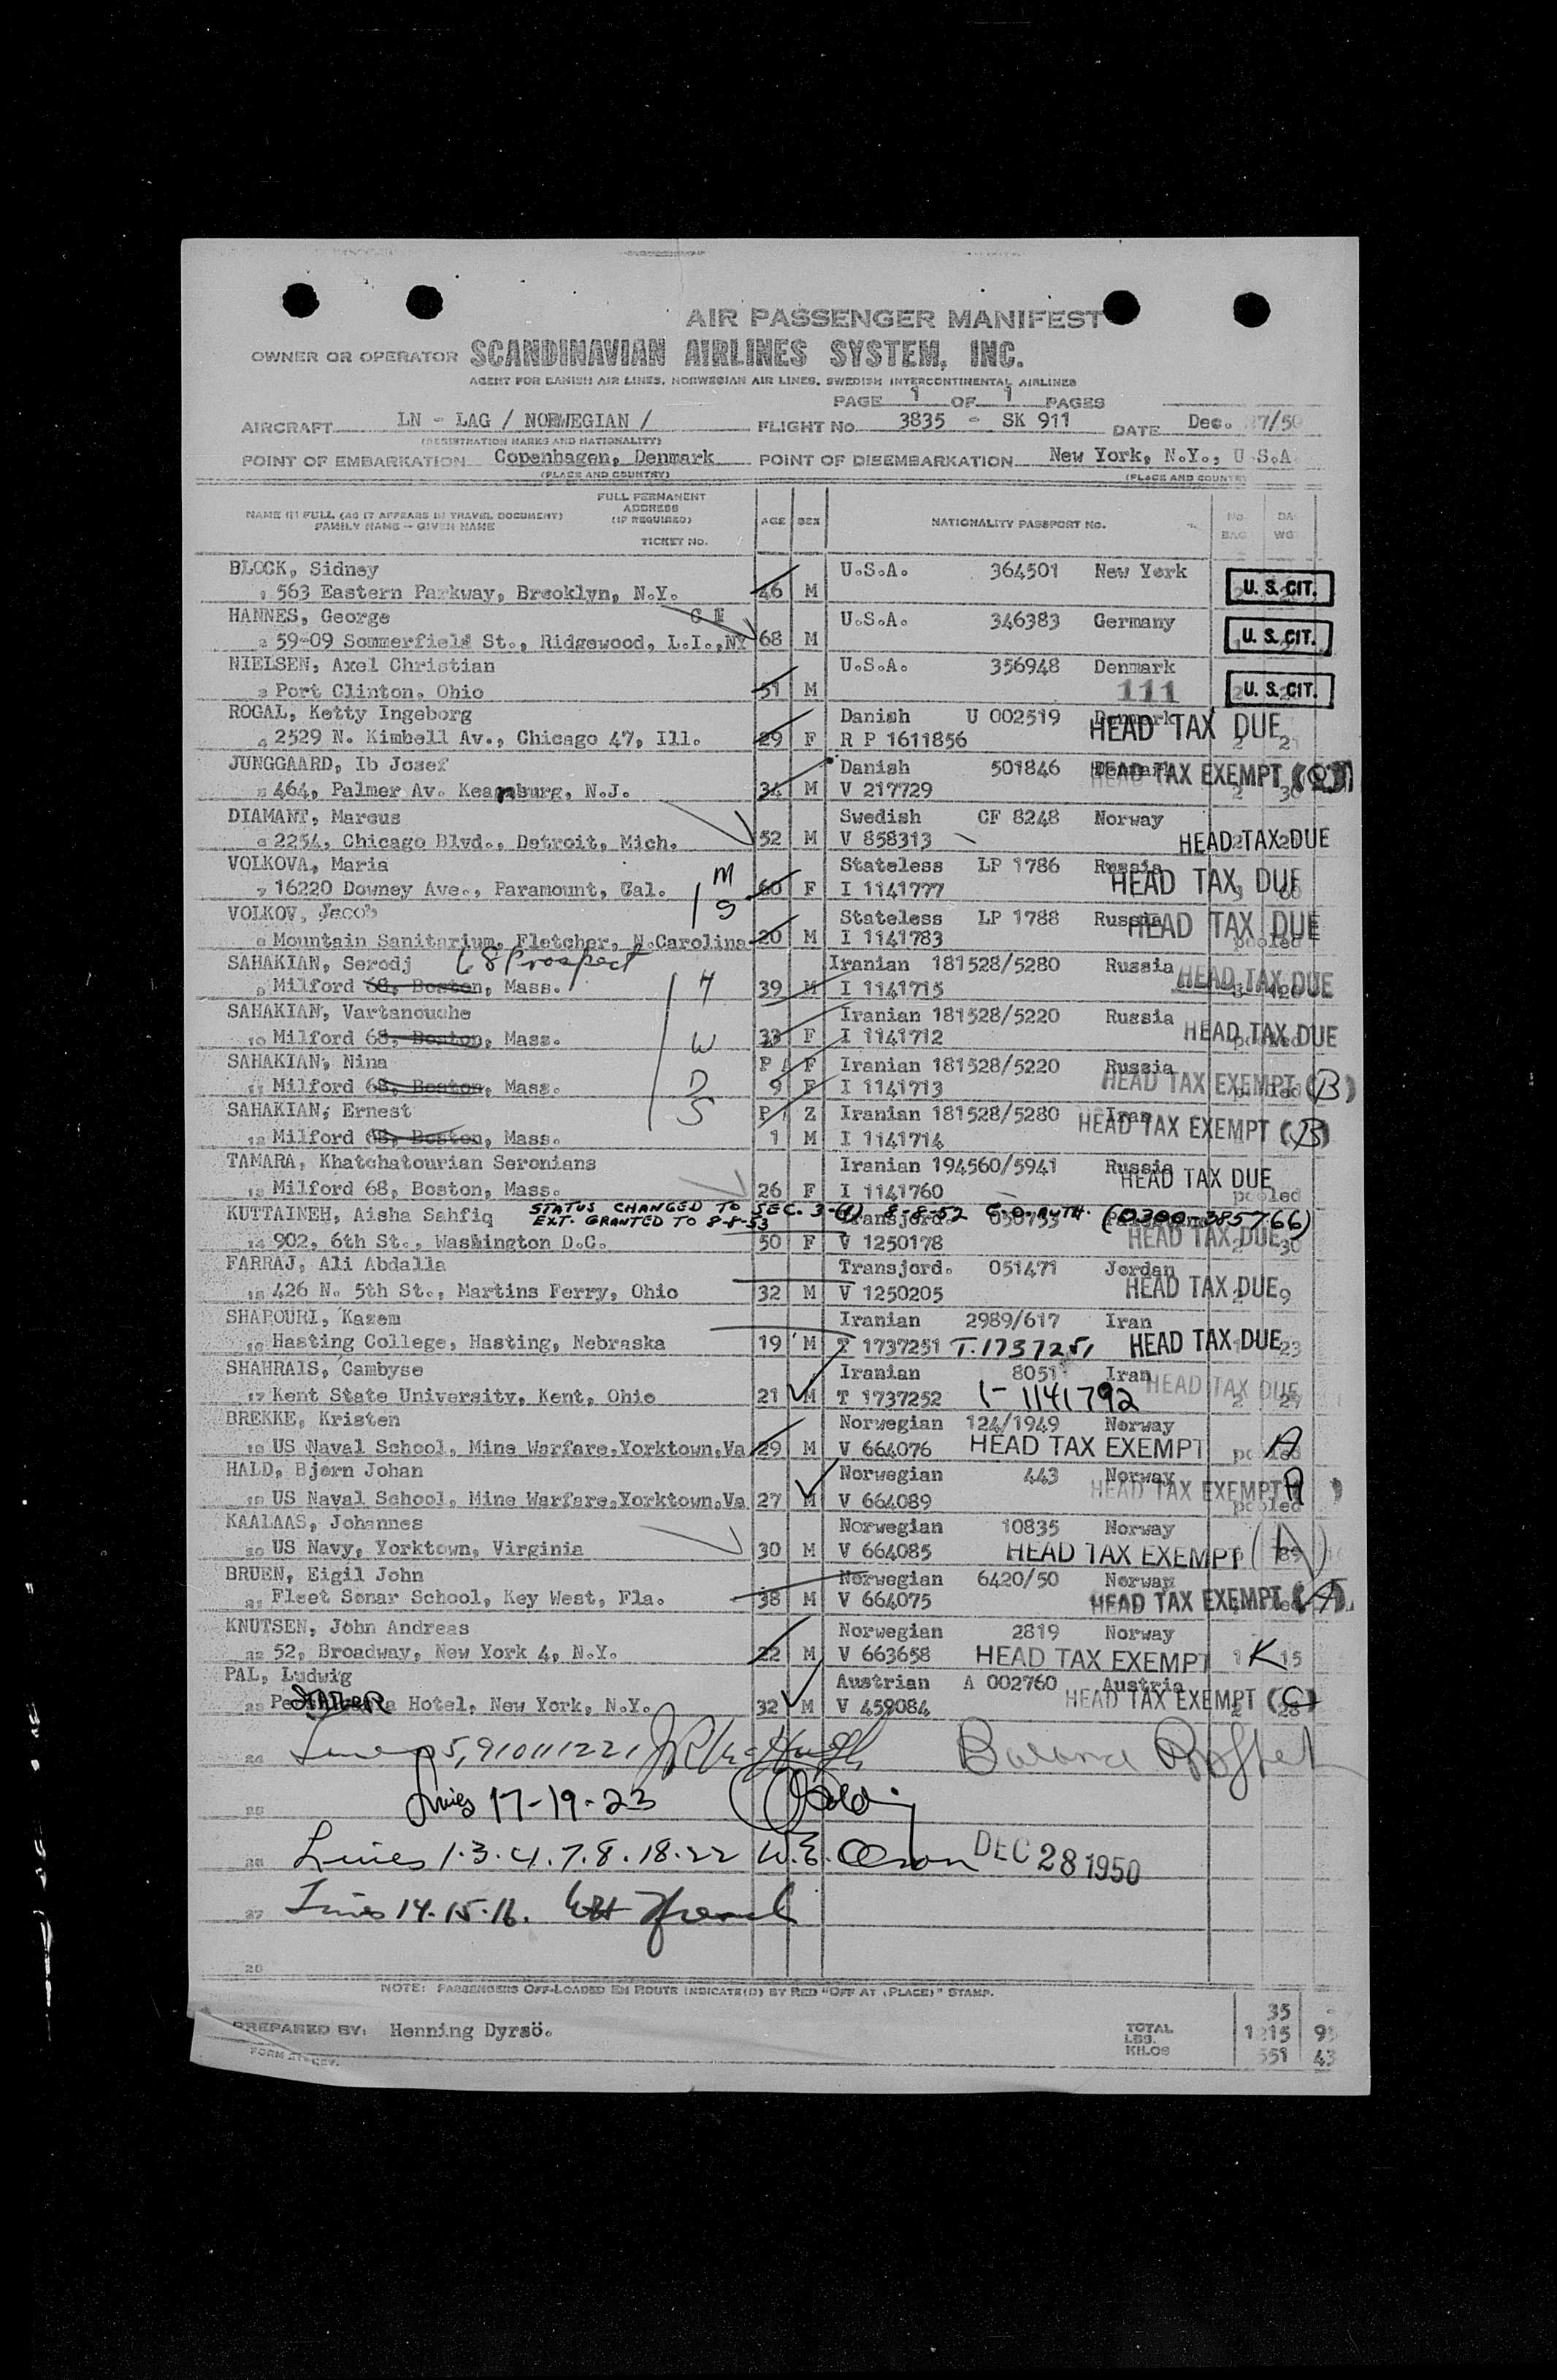 AIR PASSENGER MANIFEST
OWNER OR OPERATOR SCANDINAVIAN AIRLINES SYSTEM, INC.
AGENT FOR DANISH AIR LINES, NORWEGIAN AIR LINES, SWEDISH INTERCONTINENTAL AIRLINES
PAGE 1 OF 1 PAGES
AIRCRAFT LN - LAG / NORWEGIAN / FLIGHT No. 3835 - SK 911 DATE Dec. 27/50
(REGISTRATION MARKS AND NATIONALITY)
POINT OF EMBARKATION Copenhagen, Denmark POINT OF DISEMBARKATION New York, N.Y., U.S.A.
(PLACE AND COUNTRY) (PLACE AND COUNTRY
NAME IN FULL (AS IT APPEARS IN TRAVEL DOCUMENT) FULL PERMANENT ADDRESS (IF REQUIRED) AGE SEX NATIONALITY PASSPORT No. No. BAG WG
FAMILY NAME - GIVEN NAME TICKET NO.
BLOCK, Sidney U.S.A. 364501 New York
1 563 Eastern Parkway, Brooklyn, N.Y. 46 M U. S. CIT.
HANNES, George U.S.A. 346383 Germany
2 59-09 Sommerfield St., Ridgewood, L.I.,NY 68 M U. S. CIT.
NIELSEN, Axel Christian U.S.A. 356948 Denmark
3 Port Clinton, Ohio 51 M 111 U. S. CIT.
ROGAL, Ketty Ingeborg Danish U 002519 Denmark HEAD TAX DUE
4 2529 N. Kimbell Av., Chicago 47, Ill. 29 F R P 1611856 2 21
JUNGGAARD, Ib Josef Danish 501846 Denmark HEAD TAX EXEMPT
5 464, Palmer Av. Keansburg, N.J. 34 M V 217729 2 30
DIAMANT, Marcus Swedish CF 8248 Norway
6 2254, Chicago Blvd., Detroit, Mich. 52 M V 858313 HEAD TAX DUE
VOLKOVA, Maria Stateless LP 1786 Russia
7 16220 Downey Ave., Paramount, Cal. M 60 F I 1141777 HEAD TAX DUE
VOLKOV, Jacob S Stateless LP 1788 Russia HEAD TAX DUE
8 Mountain Sanitarium, Fletcher, N.Carolina 20 M I 1141783 pooled
SAHAKIAN, Serodj 68 Prospect Iranian 181528/5280 Russia HEAD TAX DUE
9 Milford 68, Boston, Mass. H 39 M I 1141715
SAHAKIAN, Vartanouche Iranian 181528/5220 Russia HEAD TAX DUE
10 Milford 68, Boston, Mass. W 33 F I 1141712 pooled
SAHAKIAN, Nina P F Iranian 181528/5220 Russia
11 Milford 68, Boston, Mass. D 9 F I 1141713 HEAD TAX EXEMPT (B)
SAHAKIAN, Ernest S P Z Iranian 181528/5280 Iran
12 Milford 68, Boston, Mass. 1 M I 1141714 HEAD TAX EXEMPT (B)
TAMARA, Khatchatourian Seronians Iranian 194560/5941 Russia HEAD TAX DUE
13 Milford 68, Boston, Mass. 26 F I 1141760 pooled
STATUS CHANGED TO SEC. 3-(1) 8-8-52 C.O. AUTH. (0300-385766)
KUTTAINEH, Aisha Sahfiq EXT. GRANTED TO 8-8-53 Transjord. 050753
14 902, 6th St., Washington D.C. 50 F V 1250178 HEAD TAX DUE 2 30
FARRAJ, Ali Abdalla Transjord. 051471 Jordan
15 426 N. 5th St., Martins Ferry, Ohio 32 M V 1250205 HEAD TAX DUE
SHAPOURI, Kazem Iranian 2989/617 Iran
16 Hasting College, Hasting, Nebraska 19 M T 1737251 T.1737251 HEAD TAX DUE 23
SHAHRAIS, Cambyse Iranian 8051 Iran HEAD TAX DUE
17 Kent State University, Kent, Ohio 21 M T 1737252 I- 1141792 2 27
BREKKE, Kristen Norwegian 124/1949 Norway
18 US Naval School, Mine Warfare,Yorktown,Va 29 M V 664076 HEAD TAX EXEMPT A pooled
HALD, Bjørn Johan Norwegian 443 Norway HEAD TAX EXEMPT A
19 US Naval School, Mine Warfare,Yorktown,Va 27 M V 664089 pooled
KAALAAS, Johannes Norwegian 10835 Norway
20 US Navy, Yorktown, Virginia 30 M V 664085 HEAD TAX EXEMPT (A) 89
BRUEN, Eigil John Norwegian 6420/50 Norway
21 Fleet Sonar School, Key West, Fla. 38 M V 664075 HEAD TAX EXEMPT (A)
KNUTSEN, John Andreas Norwegian 2819 Norway
22 52, Broadway, New York 4, N.Y. 22 M V 663658 HEAD TAX EXEMPT 1 K 15
PAL, Ludwig Austrian A 002760 Austria
23 Hotel, New York, N.Y. 32 M V 459084 HEAD TAX EXEMPT (C) 28
24
25 Lines 17-19-23
26 Lines 1.3.4.7.8.18.22 W.E. Olson DEC 28 1950
27 Lines 14-15-16.
28
NOTE: PASSENGERS OFF-LOADED EN ROUTE INDICATE(D) BY RED "OFF AT (PLACE)" STAMP.
35 -
PREPARED BY: Henning Dyrsö. TOTAL LBS. 1215 95
KILOS 551 43